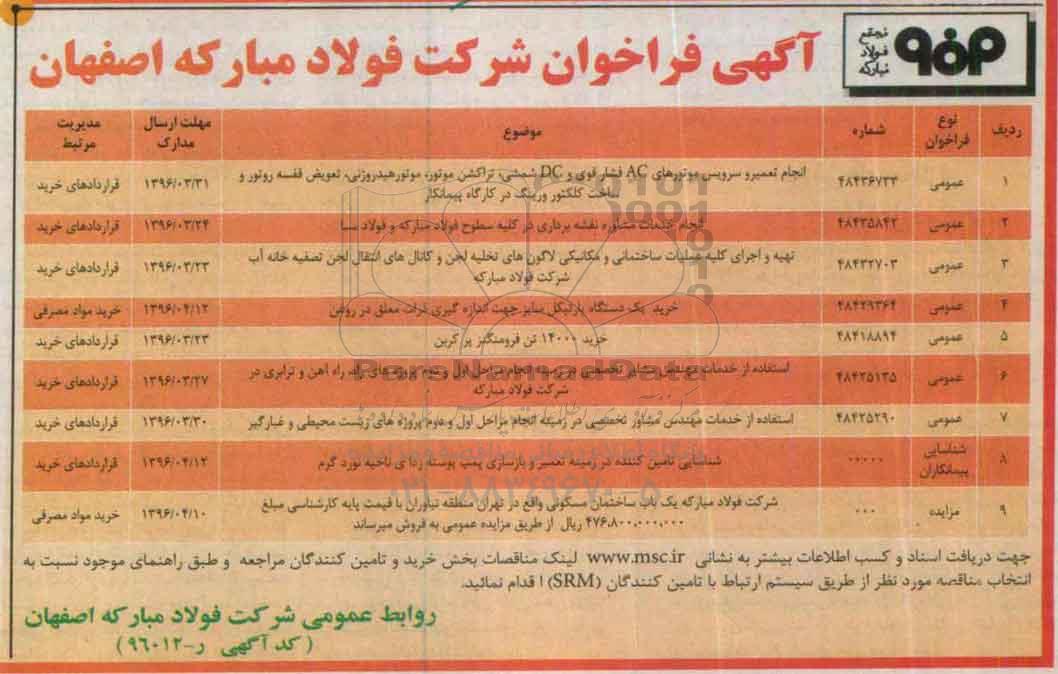 مجتمع
فولاد
مبارکه
آگهی فراخوان شرکت فولاد مبارکه اصفهان
ردیف نوع فراخوان شماره موضوع مهلت ارسال مدارک مدیریت مرتبط
۱ عمومی ۴۸۴۳۶۷۳۳ انجام تعمیرو سرویس موتورهای AC فشار قوی و DC شمشی، تراکشن موتور، موتورهیدروژنی، تعویض قفسه روتور و
ساخت کلکتور ورینگ در کارگاه پیمانکار ۱۳۹۶/۰۳/۳۱ قراردادهای خرید
۲ عمومی ۴۸۴۳۵۸۴۲ انجام خدمات مشاوره نقشه برداری در کلیه سطوح فولاد مبارکه و فولاد سبا ۱۳۹۶/۰۳/۲۴ قراردادهای خرید
۳ عمومی ۴۸۴۳۲۷۰۳ تهیه و اجرای کلیه عملیات ساختمانی و مکانیکی لاگون های تخلیه لجن و کانال های انتقال لجن تصفیه خانه آب
شرکت فولاد مبارکه ۱۳۹۶/۰۳/۲۳ قراردادهای خرید
۴ عمومی ۴۸۴۲۹۳۶۴ خرید یک دستگاه پارتیکل سایز جهت اندازه گیری ذرات معلق در روغن ۱۳۹۶/۰۴/۱۲ خرید مواد مصرفی
۵ عمومی ۴۸۴۱۸۸۹۴ خرید ۱۴۰۰۰ تن فرومنگنز پر کربن ۱۳۹۶/۰۳/۲۳ قراردادهای خرید
۶ عمومی ۴۸۴۲۵۱۳۵ استفاده از خدمات مهندس مشاور تخصصی در زمینه انجام مراحل اول و دوم پروژه های راه، راه آهن و ترابری در
شرکت فولاد مبارکه ۱۳۹۶/۰۳/۲۷ قراردادهای خرید
۷ عمومی ۴۸۴۲۵۲۹۰ استفاده از خدمات مهندس مشاور تخصصی در زمینه انجام مراحل اول و دوم پروژه های زیست محیطی و غبارگیر ۱۳۹۶/۰۳/۳۰ قراردادهای خرید
۸ شناسایی پیمانکاران ۰۰۰۰۰ شناسایی تامین کننده در زمینه تعمیر و بازسازی پمپ پوسته زدا ی ناحیه نورد گرم ۱۳۹۶/۰۴/۱۲ قراردادهای خرید
۹ مزایده ۰۰۰ شرکت فولاد مبارکه یک باب ساختمان مسکونی واقع در تهران منطقه نیاوران با قیمت پایه کارشناسی مبلغ
۴۷۶،۸۰۰،۰۰۰،۰۰۰ ریال از طریق مزایده عمومی به فروش میرساند ۱۳۹۶/۰۴/۱۰ خرید مواد مصرفی
جهت دریافت اسناد و کسب اطلاعات بیشتر به نشانی www.msc.ir لینک مناقصات بخش خرید و تامین کنندگان مراجعه و طبق راهنمای موجود نسبت به
انتخاب مناقصه مورد نظر از طریق سیستم ارتباط با تامین کنندگان (SRM) ا قدام نمائید.
روابط عمومی شرکت فولاد مبارکه اصفهان
(کد آگهی ر-۹۶۰۱۲)
ParsNamadData
۰۲۱-۸۸۳۴۹۶۷۰-۵